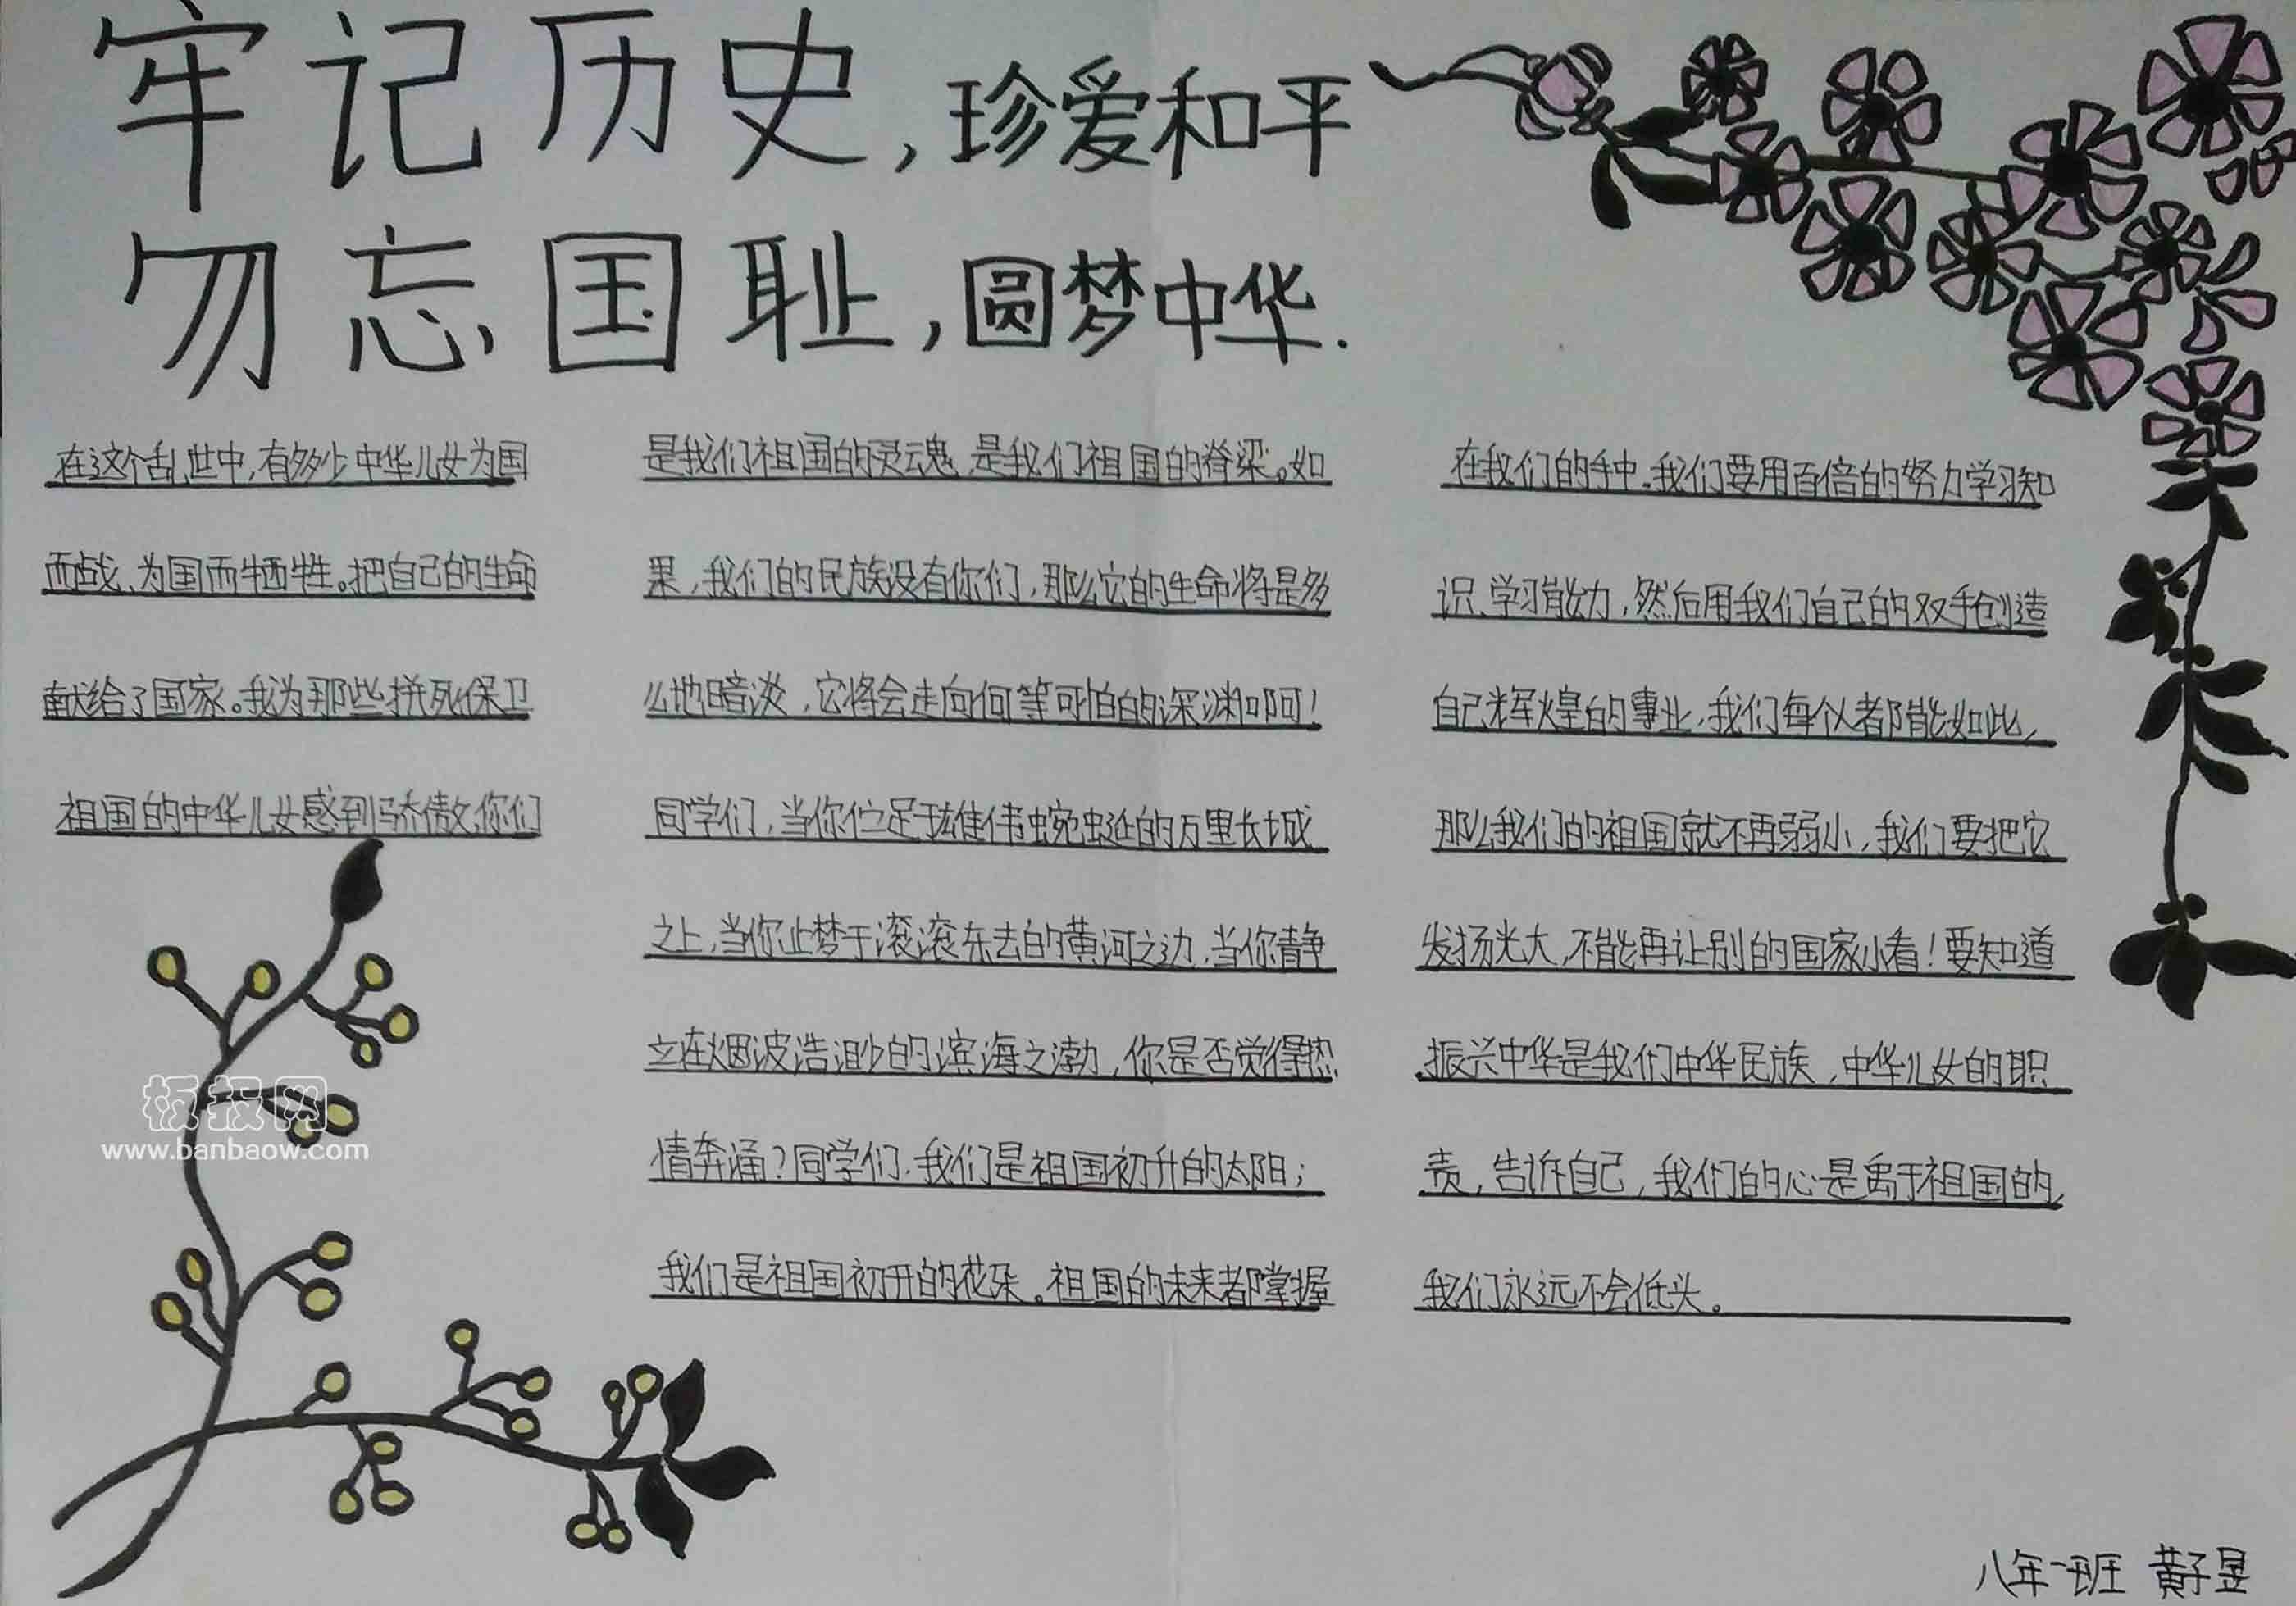 牢记历史，珍爱和平
勿忘国耻，圆梦中华.
在这个乱世中，有多少中华儿女为国
而战、为国而牺牲。把自己的生命
献给了国家。我为那些拼死保卫
祖国的中华儿女感到骄傲，你们
是我们祖国的灵魂，是我们祖国的脊梁。如
果，我们的民族没有你们，那么它的生命将是多
么地暗淡，它将会走向何等可怕的深渊啊！
同学们，当你伫足于雄伟蜿蜒的万里长城
之上，当你止梦于滚滚东去的黄河之边，当你静
立在烟波浩渺的滨海之渤，你是否觉得热
情奔涌？同学们，我们是祖国初升的太阳；
我们是祖国初开的花朵。祖国的未来都掌握
在我们的手中。我们要用百倍的努力学习知
识、学习能力，然后用我们自己的双手创造
自己辉煌的事业，我们每个人都能如此，
那么我们的祖国就不再弱小，我们要把它
发扬光大，不能再让别的国家小看！要知道
振兴中华是我们中华民族，中华儿女的职
责，告诉自己，我们的心是属于祖国的，
我们永远不会低头。
板报网
www.banbaow.com
八年一班 黄子昱